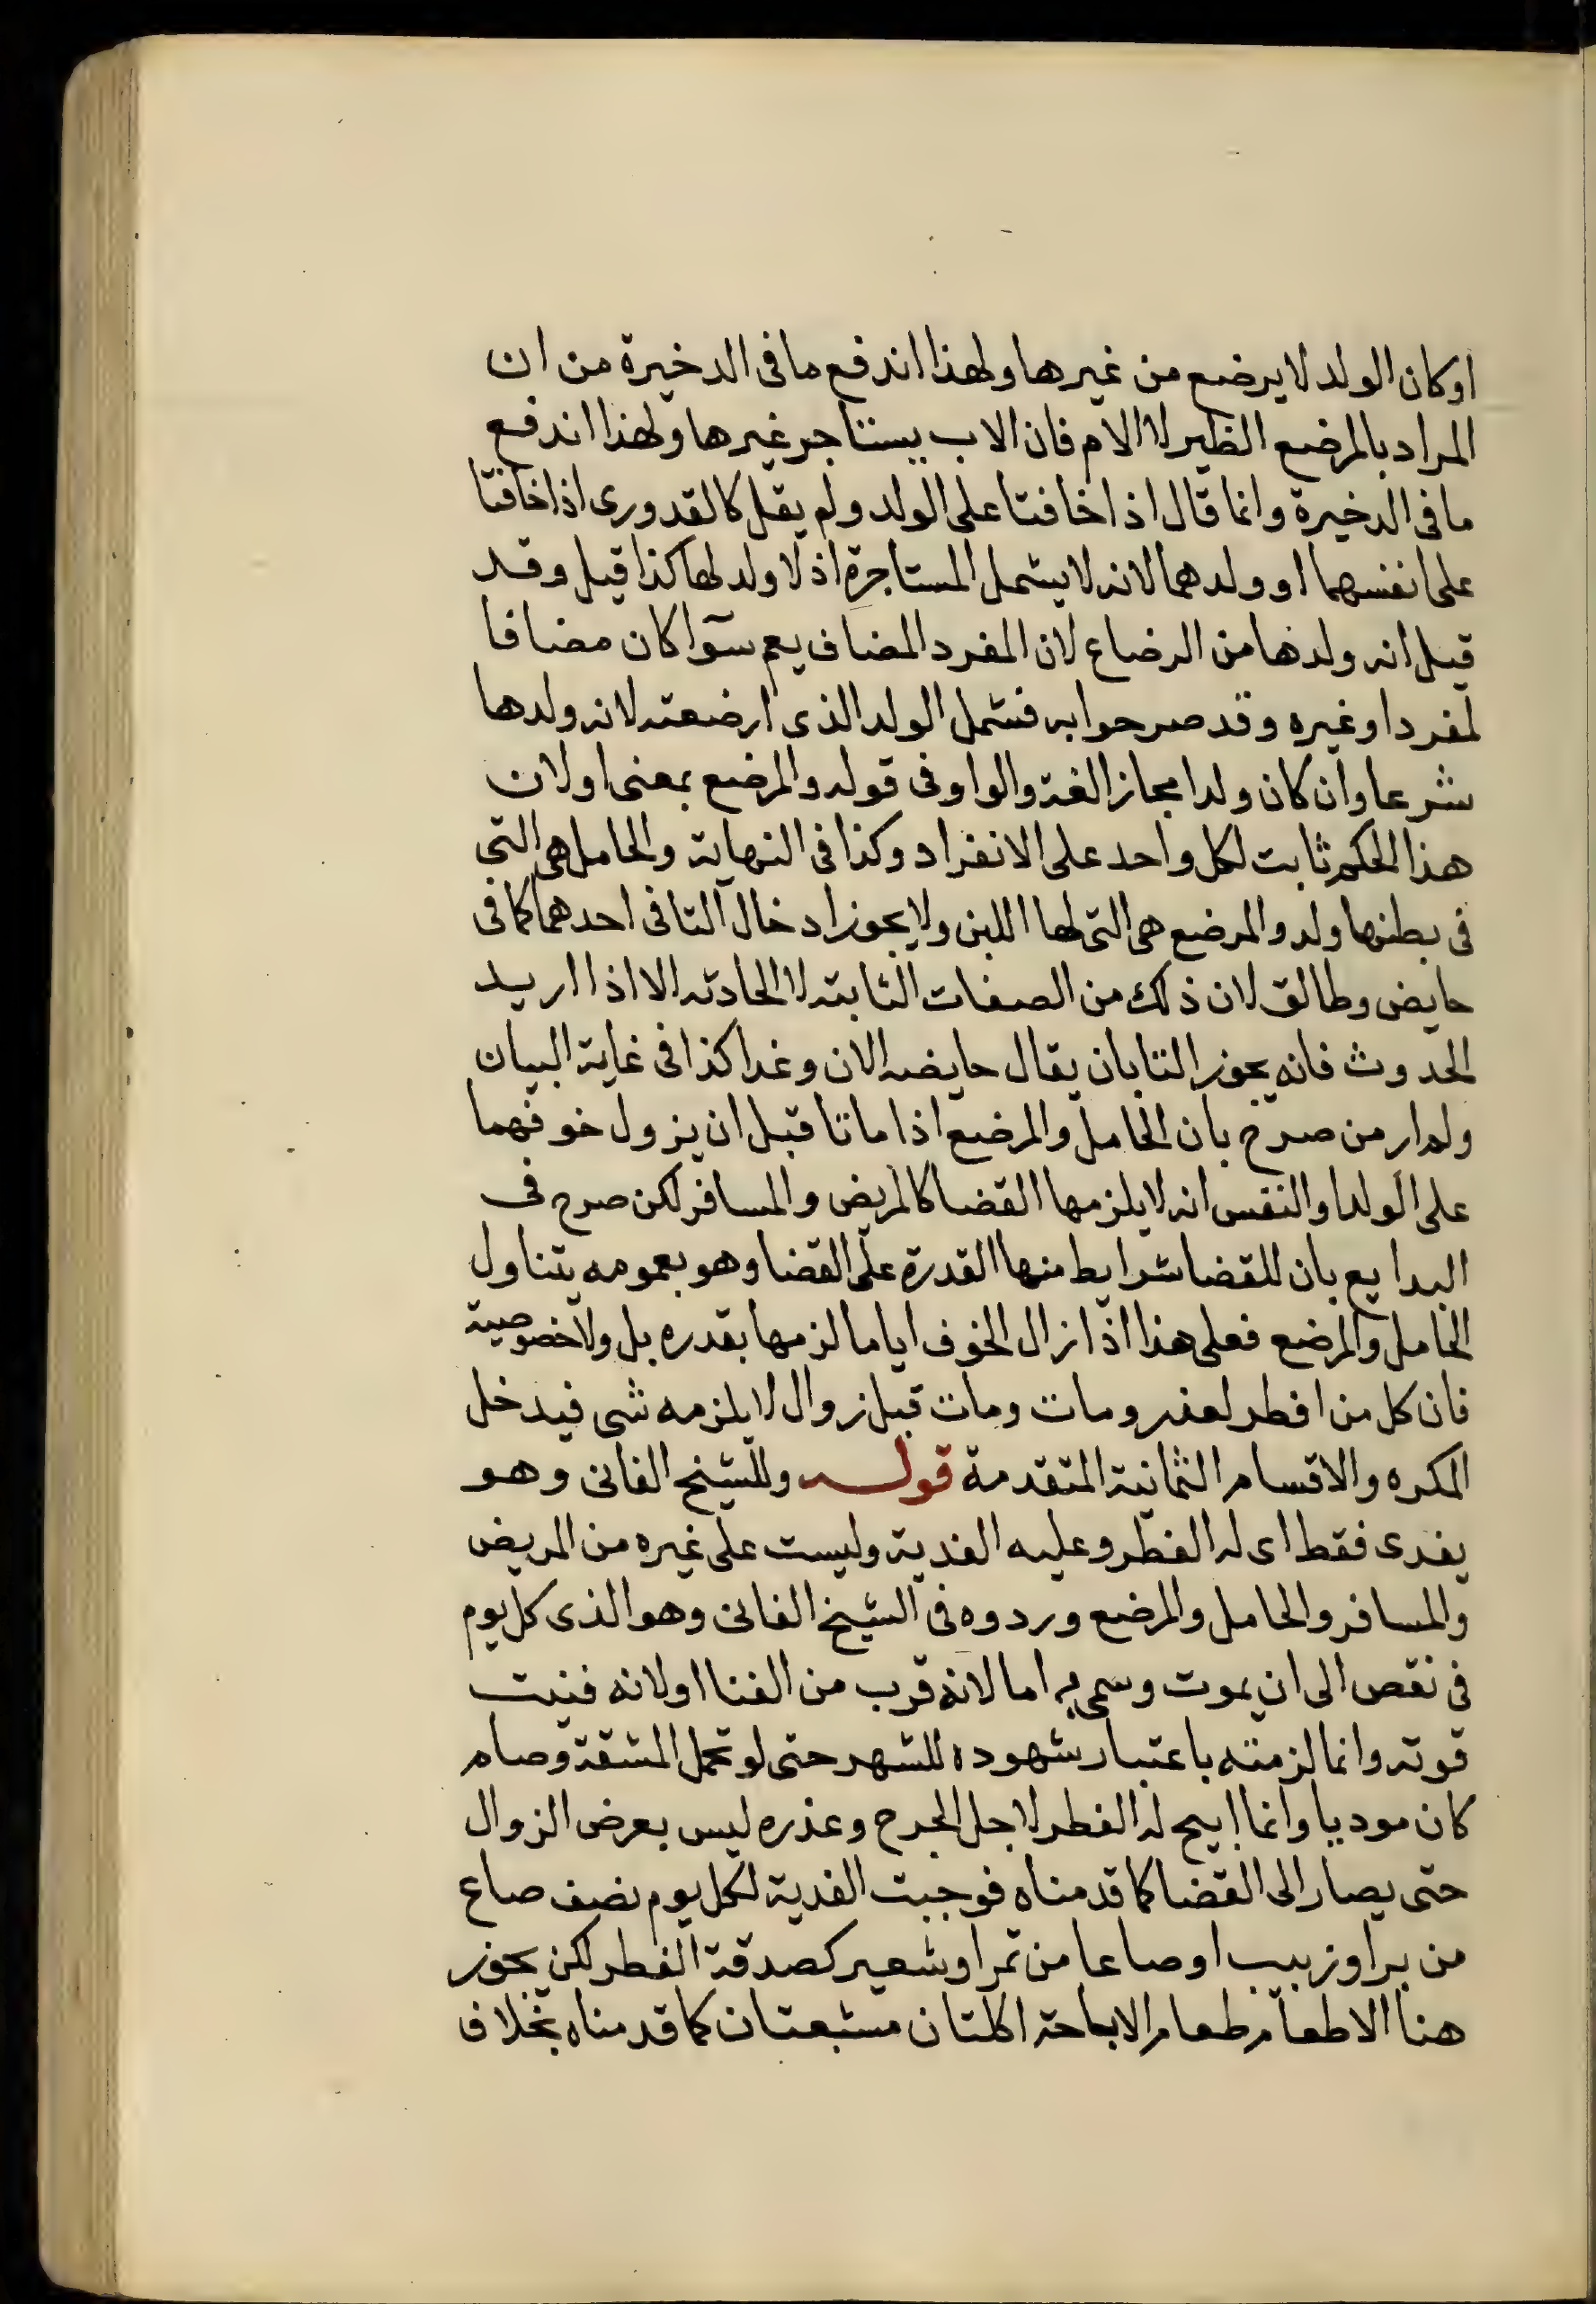 اوكان الولد لا يرضع من غيرها ولهذا اندفع ما فى الدخيرة من ان
المراد بالمرضع الظير لا الام فان الاب يستاجر غيرها ولهذا اندفع
ما فى الدخيرة وانما قال اذا خافتا على الولد ولم يقل كالقدورى اذا خافتا
على انفسهما او ولدهما لانه لا يشمل المستاجرة اذ لا ولد لها كذا قيل وقد
قيل انه ولدها من الرضاع لان المفرد المضاف يعم سوآ كان مضافا
لمفرد او غيره وقد صرحوا به فشمل الولد الذى ارضعته لانه ولدها
شرعا وان كان ولدا مجاز الغة والواو فى قوله والمرضع بمعنى او لان
هذا الحكم ثابت لكل واحد على الانفراد وكذا فى النهاية والحامل هى التى
فى بطنها ولد والمرضع هى التى لها اللبن ولا يجوز ادخال التا فى احدهما كما فى
حايض وطالق لان ذلك من الصفات الثابته لا الحادثه الا اذا اريد
الحدوث فانه يجوز التا بان يقال حايضه الان وغدا كذا فى غاية البيان
ولم ار من صرح بان الحامل والمرضع اذا ماتا قبل ان يزول خوفهما
على الولد او النفس انه لا يلزمها القضا كالمريض والمسافر لكن صرح فى
البدايع بان للقضا شرايط منها القدرة على القضا وهو بعمومه يتناول
الحامل والمرضع فعلى هذا اذا زال الخوف اياما لزمها بقدره بل ولا خصوصية
فان كل من افطر لعذر ومات ومات قبل زوال لا يلزمه شى فيدخل
المكره والاقسام الثمانية المتقدمة قوله وللشيخ الفانى وهو
يفدى فقط اى له الفطر وعليه الفدية وليست على غيره من المريض
والمسافر والحامل والمرضع وردوه فى الشيخ الفانى وهو الذى كل يوم
فى نقص الى ان يموت وسمى به اما لانه قرب من الفنا او لانه فنيت
قوته وانما لزمته باعتبار شهوده للشهر حتى لو تحمل المشقة وصام
كان موديا وانما ابيح له الفطر لاجل الحرح وعذره ليس بعرض الزوال
حتى يصار الى القضا كما قدمناه فوجبت الفدية لكل يوم نصف صاع
من بر او زبيب او صاعا من تمر او شعير كصدقة الفطر لكن يجوز
هنا الاطعام طعام الاباحة اكلتان مشبعتان كما قدمناه بخلاف